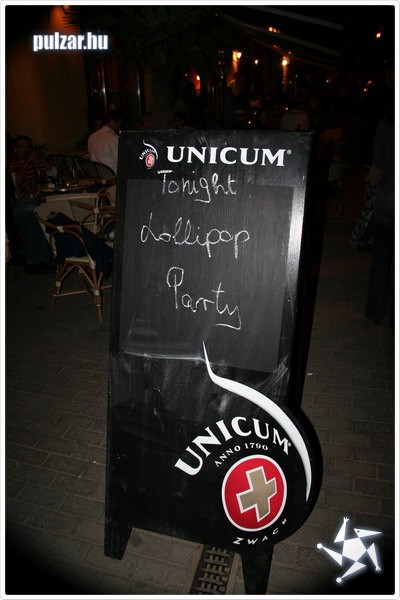 pulzar.hu
UNICUM®
Tonight
Lollipop
Party
UNICUM®
ANNO 1790
ZWACK